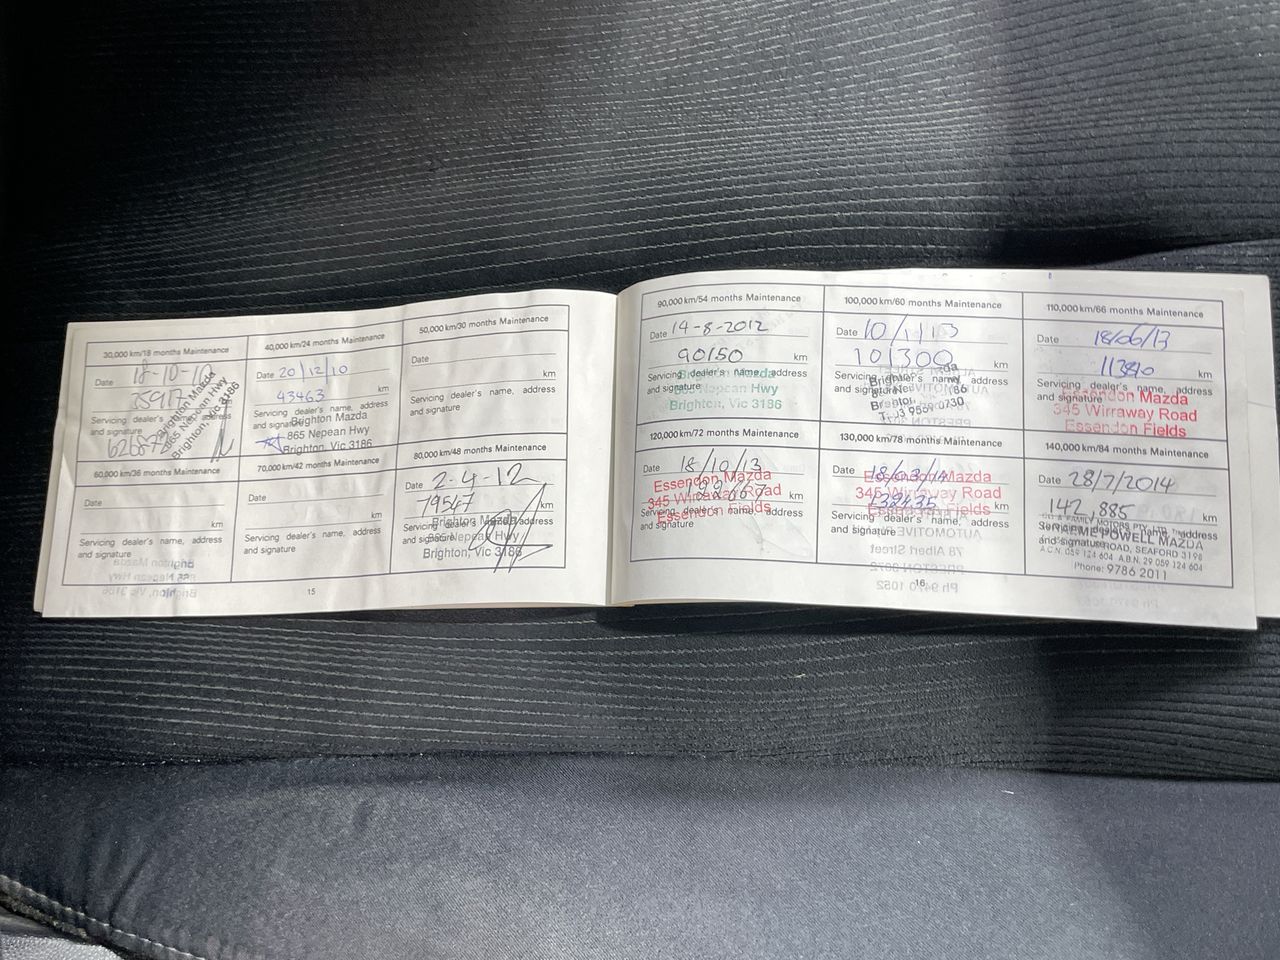 30,000 km/18 months Maintenance
Date 18-10-10
km
Servicing dealer's name, address
and signature
Brighton Mazda
865 Nepean Hwy
Brighton, Vic 3186
40,000 km/24 months Maintenance
Date 20/12/10
43463 km
Servicing dealer's name, address
and signature
Brighton Mazda
865 Nepean Hwy
Brighton, Vic 3186
50,000 km/30 months Maintenance
Date
km
Servicing dealer's name, address
and signature
60,000 km/36 months Maintenance
Date
km
Servicing dealer's name, address
and signature
70,000 km/42 months Maintenance
Date
km
Servicing dealer's name, address
and signature
80,000 km/48 months Maintenance
Date 2-4-12
79547 km
Servicing dealer's name, address
and signature
Brighton Mazda
865 Nepean Hwy
Brighton, Vic 3186
15
90,000 km/54 months Maintenance
Date 14-8-2012
90150 km
Servicing dealer's name, address
and signature
Brighton Mazda
865 Nepean Hwy
Brighton, Vic 3186
100,000 km/60 months Maintenance
Date 10/1/13
101300 km
Servicing dealer's name, address
and signature
110,000 km/66 months Maintenance
Date 18/06/13
km
Servicing dealer's name, address
and signature
Essendon Mazda
345 Wirraway Road
Essendon Fields
120,000 km/72 months Maintenance
Date 18/10/13
km
Servicing dealer's name, address
and signature
Essendon Mazda
345 Wirraway Road
Essendon Fields
130,000 km/78 months Maintenance
Date 18/03/14
km
Servicing dealer's name, address
and signature
Essendon Mazda
345 Wirraway Road
Essendon Fields
140,000 km/84 months Maintenance
Date 28/7/2014
142,885 km
Servicing dealer's name, address
and signature
POWELL MAZDA
ROAD, SEAFORD 3198
A.C.N. 059 124 604 A.B.N. 29 059 124 604
Phone: 9786 2011
16